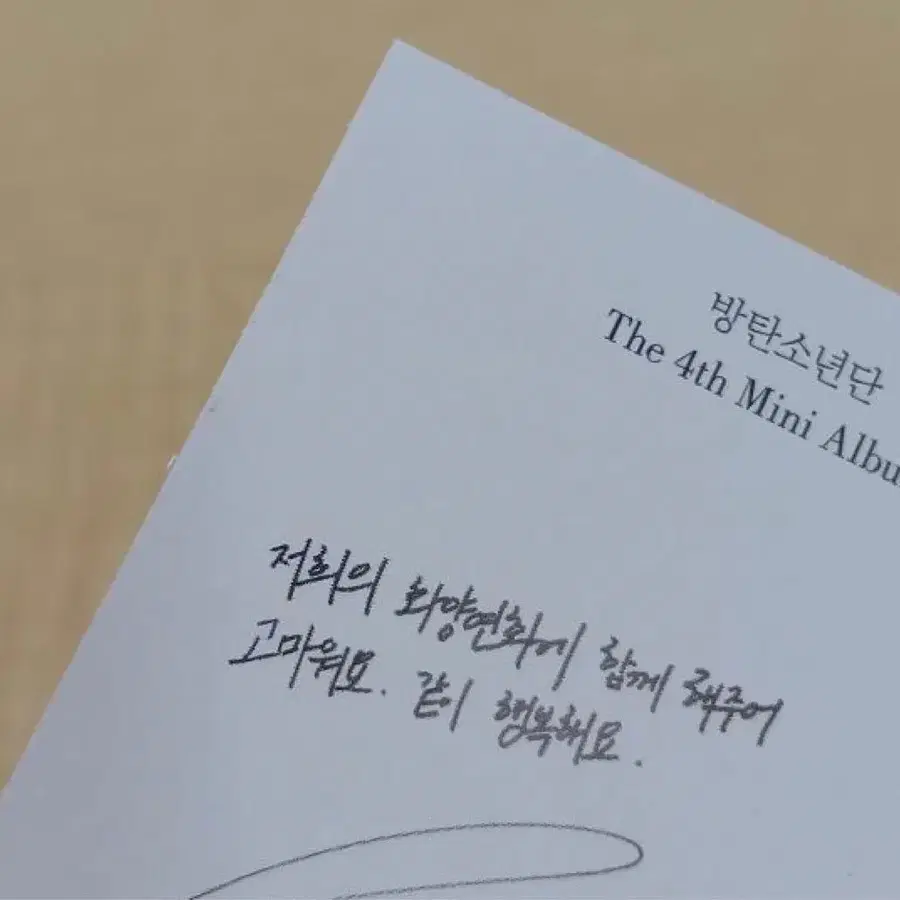 방탄소년단
The 4th Mini Albu
저희의 화양연화에 함께 해주어
고마워요. 같이 행복해요.